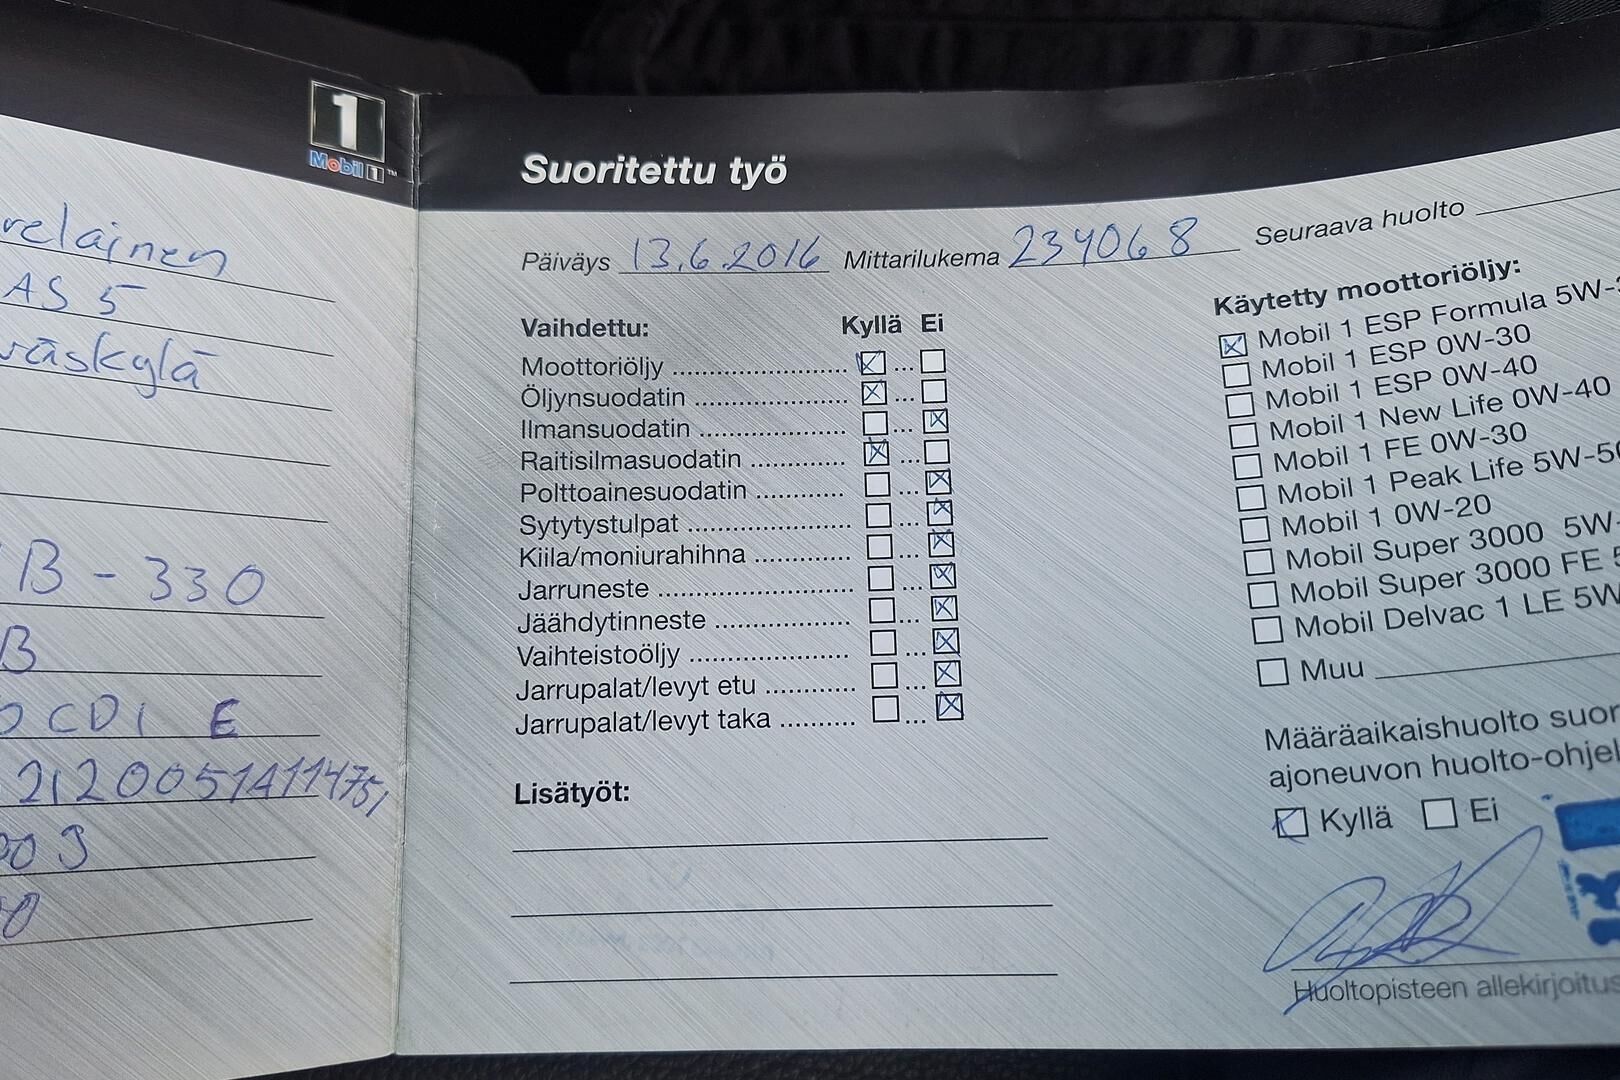 1
Mobil 1™
relainen
AS 5
väskylä
B - 330
B
CDI E
21200514114751
003
0
Suoritettu työ
Päiväys 13.6.2016 Mittarilukema 234068 Seuraava huolto
Vaihdettu: Kyllä Ei
Moottoriöljy
Öljynsuodatin
Ilmansuodatin
Raitisilmasuodatin
Polttoainesuodatin
Sytytystulpat
Kiila/moniurahihna
Jarruneste
Jäähdytinneste
Vaihteistoöljy
Jarrupalat/levyt etu
Jarrupalat/levyt taka
Lisätyöt:
Käytetty moottoriöljy:
Mobil 1 ESP Formula 5W-3
Mobil 1 ESP 0W-30
Mobil 1 ESP 0W-40
Mobil 1 New Life 0W-40
Mobil 1 FE 0W-30
Mobil 1 Peak Life 5W-50
Mobil 1 0W-20
Mobil Super 3000 5W-
Mobil Super 3000 FE 5
Mobil Delvac 1 LE 5W
Muu
Määräaikaishuolto suor
ajoneuvon huolto-ohjel
Kyllä Ei
Huoltopisteen allekirjoitus